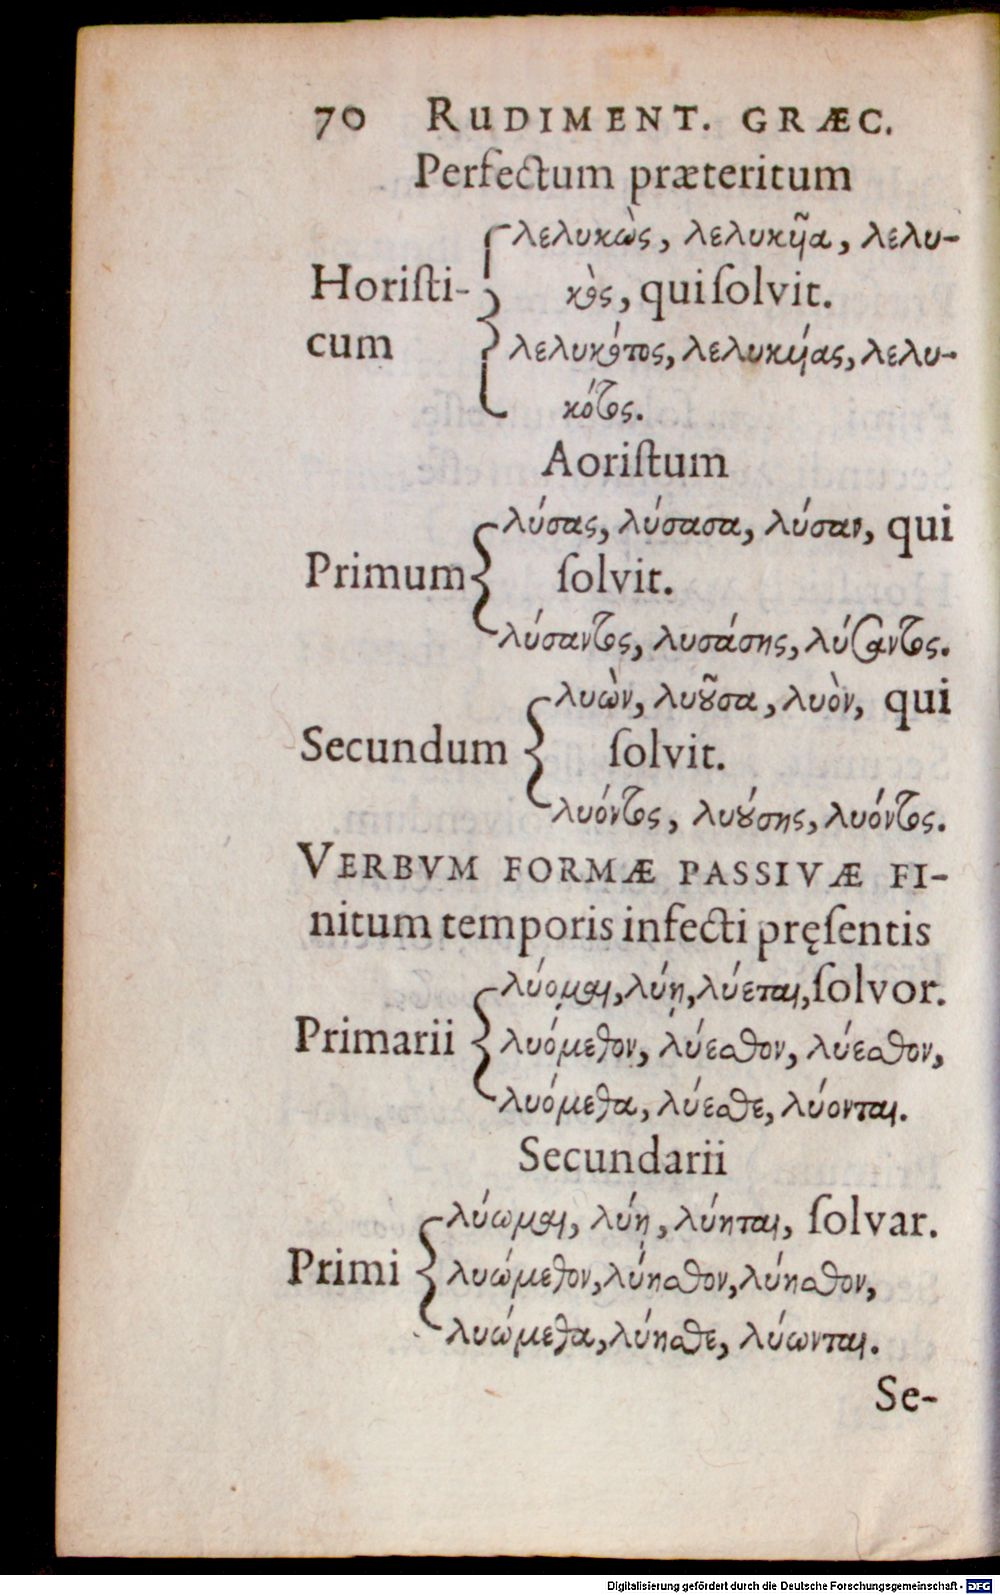 70 RUDIMENT. GRÆC.
Perfectum præteritum
λελυκὼς, λελυκῆα, λελυ-
Horiſti- κὸς, qui ſolvit.
cum λελυκότος, λελυκήας, λελυ-
κότος.
Aoriſtum
λύσας, λύσασα, λύσαν, qui
Primum ſolvit.
λύσαντος, λυσάσης, λύσαντος.
λυὼν, λυοῦσα, λυὸν, qui
Secundum ſolvit.
λυόντος, λυούσης, λυόντος.
VERBVM FORMÆ PASSIVÆ FI-
nitum temporis infecti pręſentis
λύομαι, λύῃ, λύεται, ſolvor.
Primarii λυόμεθον, λύεσθον, λύεσθον,
λυόμεθα, λύεσθε, λύονται.
Secundarii
λύωμαι, λύῃ, λύηται, ſolvar.
Primi λυώμεθον, λύησθον, λύησθον,
λυώμεθα, λύησθε, λύωνται.
Se-
Digitalisierung gefördert durch die Deutsche Forschungsgemeinschaft - DFG